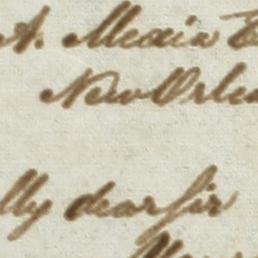 A. Mexia
New Orlea
lly dear sir